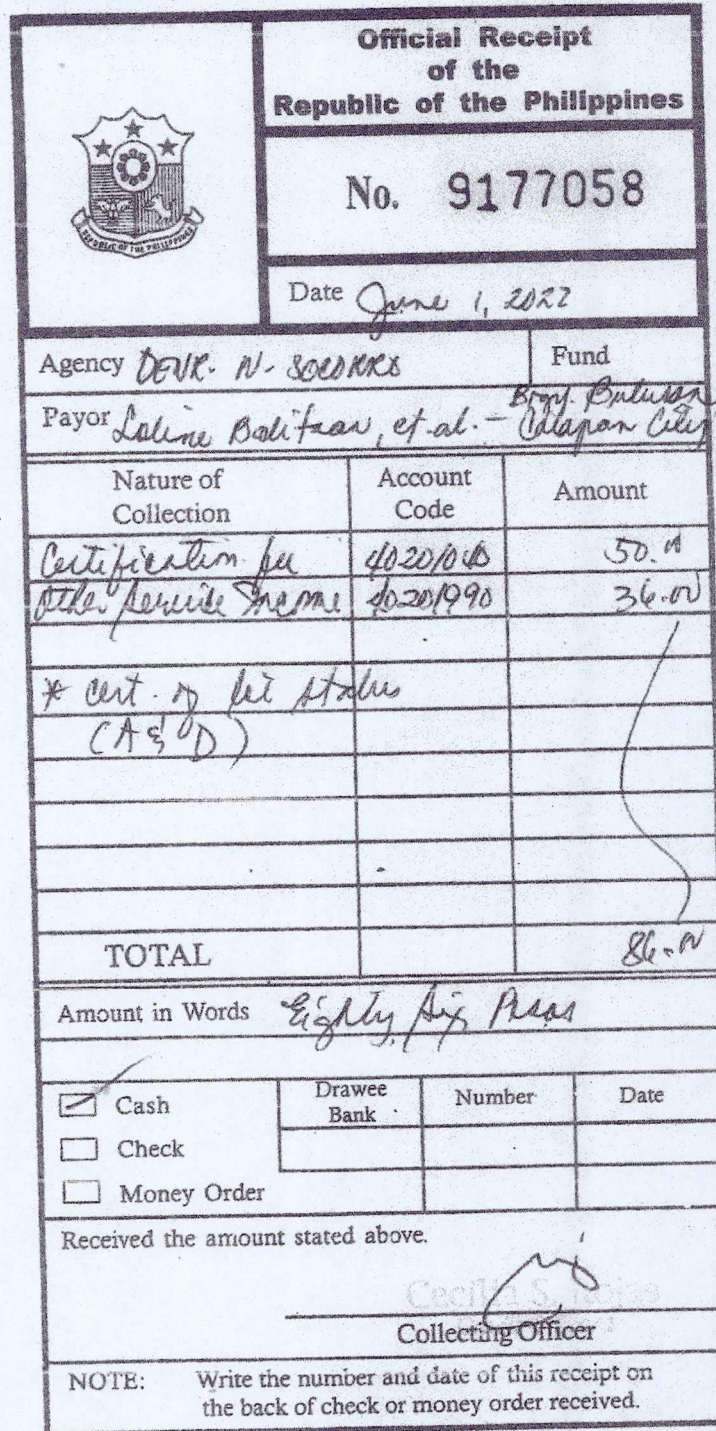 Official Receipt
of the
Republic of the Philippines
REPUBLIC OF THE PHILIPPINES
No. 9177058
Date June 1, 2022
Agency DENR - N - SOCORRO
Fund
Payor Loline Balitaan, et al. - Brgy. Bulusan
Calapan City
Nature of Collection Account Code Amount
Certification fee 40201040 50.00
Other Service Income 40201990 36.00
* Cert. of lot status
(A & D)
TOTAL 86.00
Amount in Words Eighty Six Pesos
Cash Drawee Bank Number Date
Check
Money Order
Received the amount stated above.
Cecilia S. Rojas
Collecting Officer
NOTE: Write the number and date of this receipt on
the back of check or money order received.